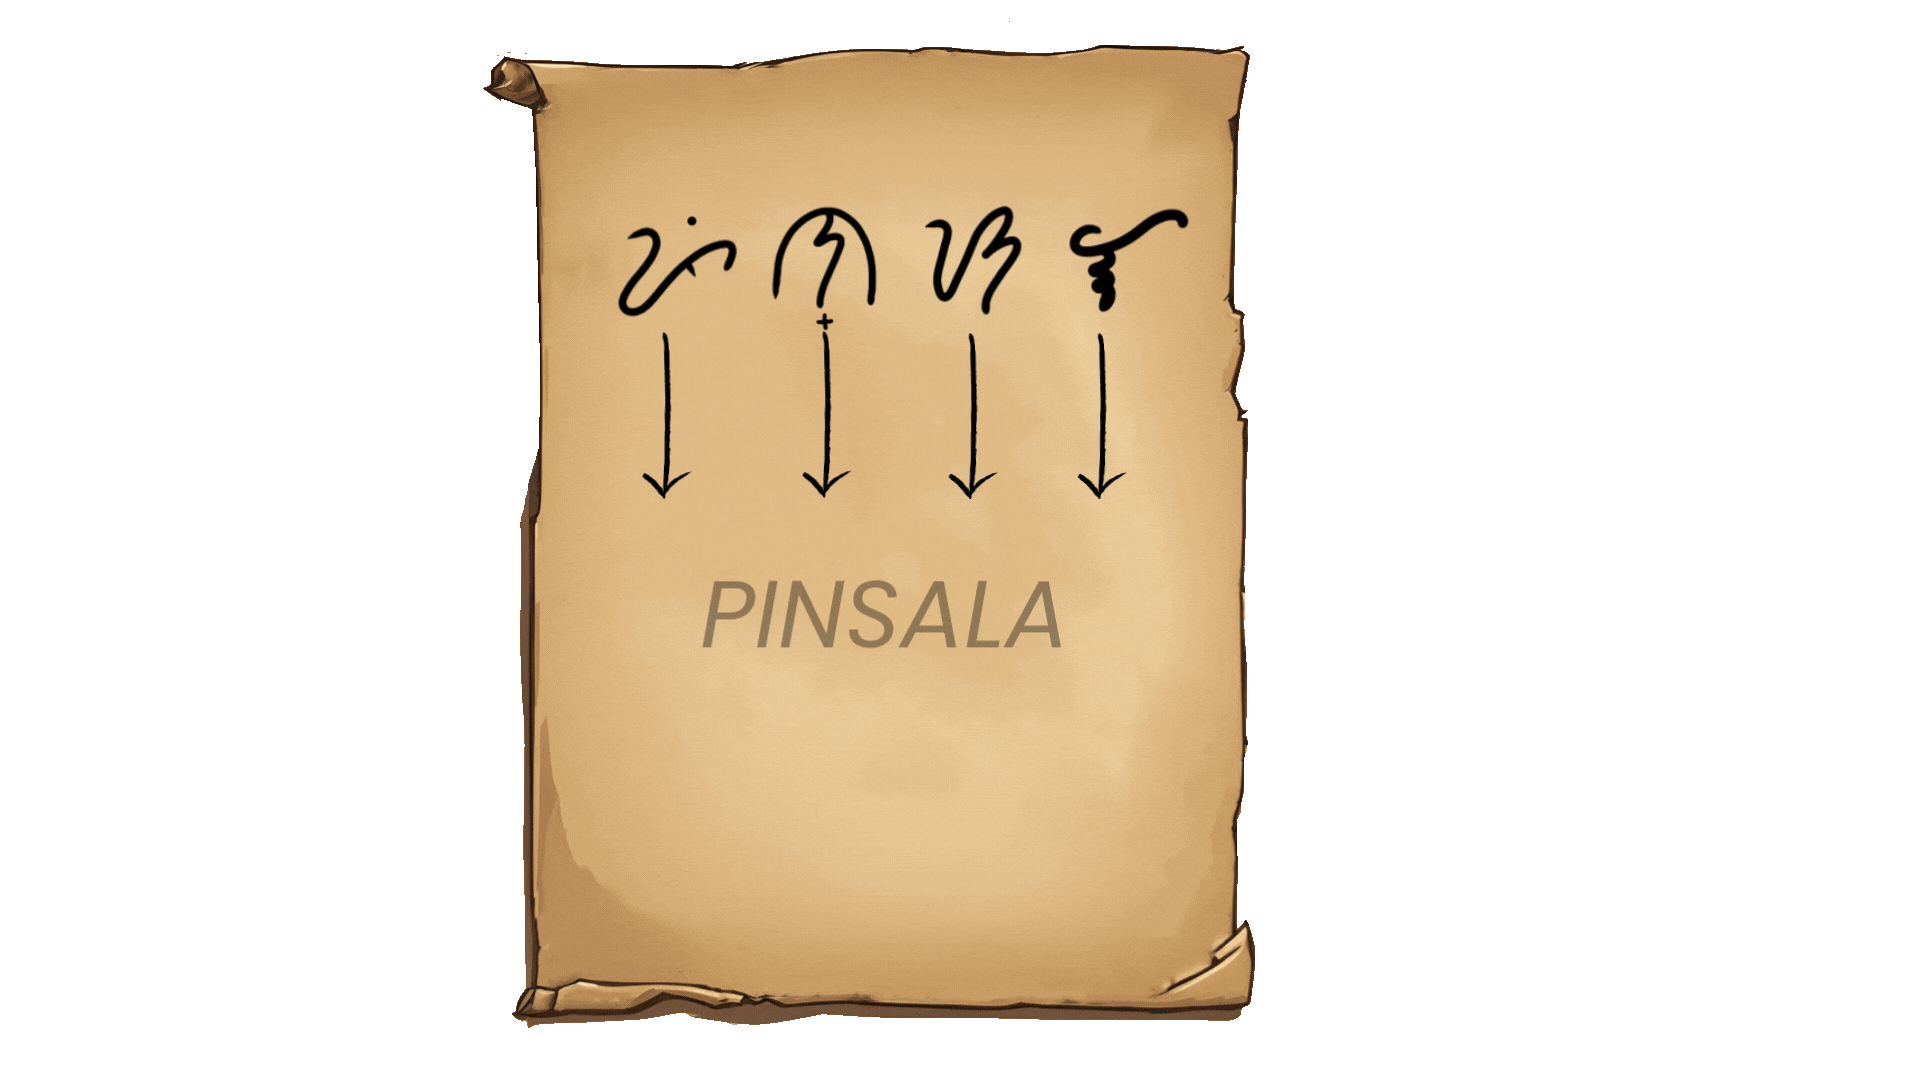 ᜉᜒ ᜎ᜔ ᜐ ᜈ
PINSALA